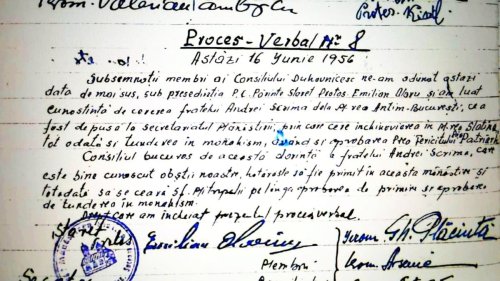 Ierom. Valerian
Protos. Kiril
Proces-Verbal Nº 8
Astăzi 16 Iunie 1956
Subsemnatii membri ai Consiliului Duhovnicesc ne-am adunat astăzi
data de mai sus, sub presedintia P.C. Părinte Staret Protos. Emilian Olaru și am luat
cunostință de cererea fratelui Andrei Scrima dela M-rea Antim-Bucuresti, ce a
fost depusă la Secretariatul Mănăstirii, prin care cere închinovierea în M-rea Slatina,
tot odată și tunderea în monahism, având și aprobarea Prea Fericitului Patriarh
Consiliul bucuros de această dorință a fratelui Andrei Scrima, care
este bine cunoscut obștii noastre, hotărăste să fie primit în aceasta mănăstire și
totodată să se ceară Sf. Mitropolii pe lînga aprobarea de primire și aprobarea
de tundere în monahism.
Drept care am incheiat prezentul proces verbal.
Staret
Emilian Olaru
Ierom. Gh. Plăcintă
Membrii
Ierom. Arsenie